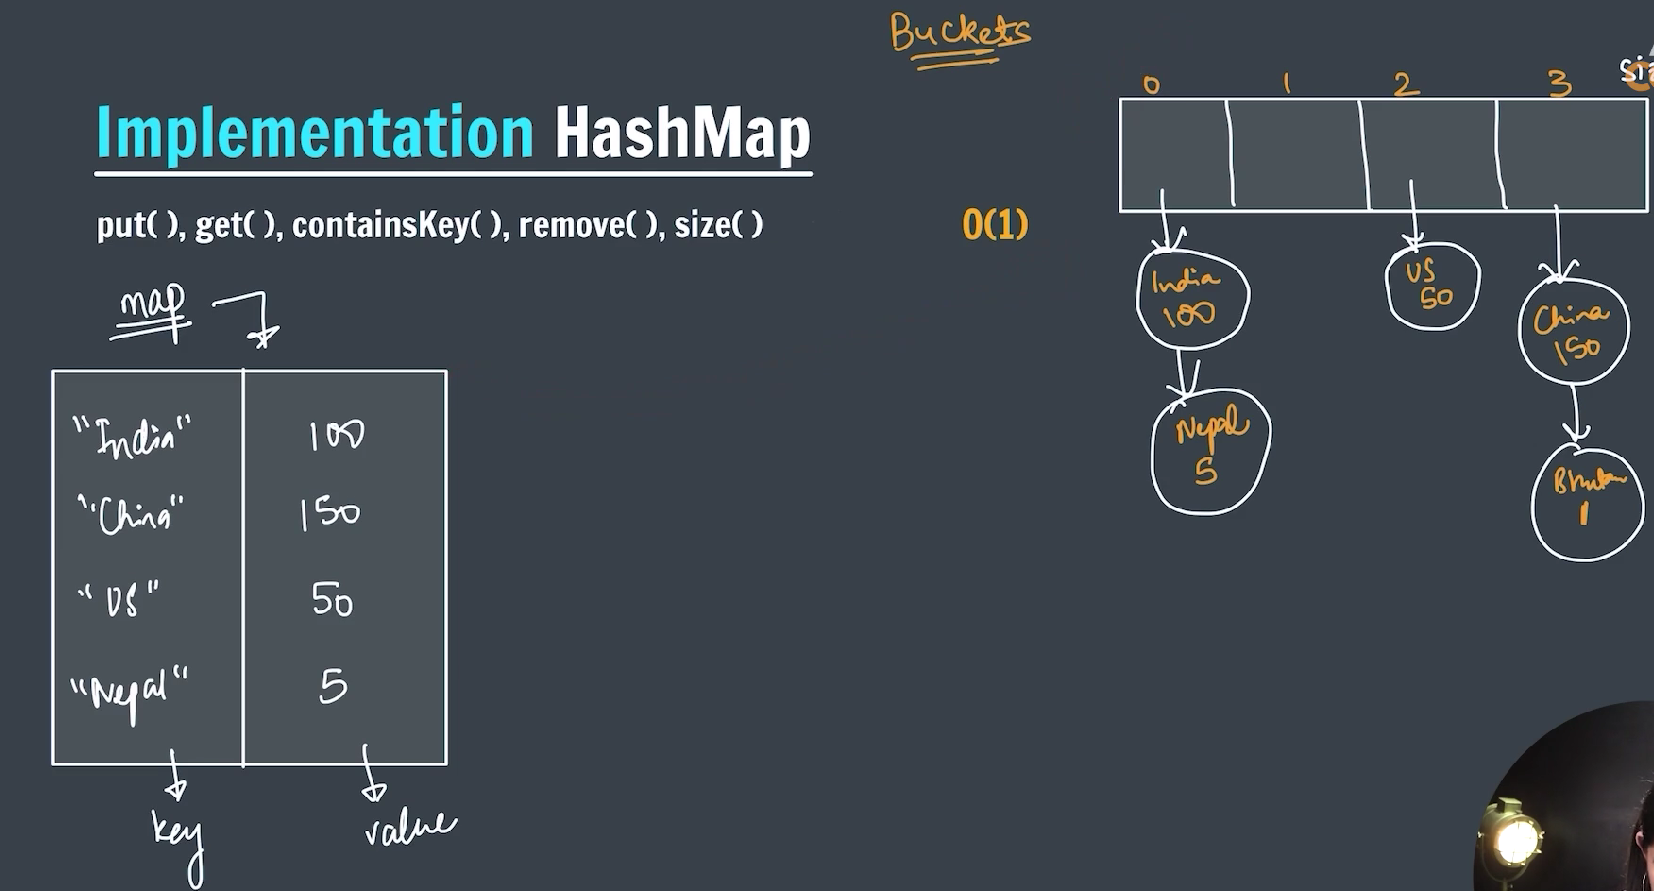 Buckets
Implementation HashMap
put( ), get( ), containsKey( ), remove( ), size( )
O(1)
map
"India" 100
"China" 150
"US" 50
"Nepal" 5
key value
0 1 2 3
India
100
Nepal
5
US
50
China
150
Bhutan
1